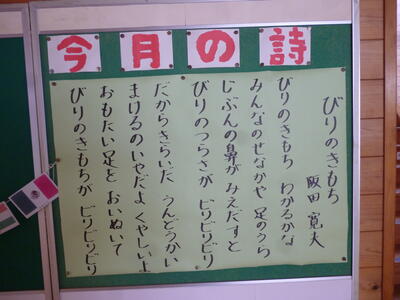 今月の詩
びりのきもち
阪田 寛夫
びりのきもち わかるかな
みんなのせなかや 足のうら
じぶんの鼻が みえだすと
びりのつらさが ビリビリビリ
だからきらいだ うんどうかい
まけるのいやだよ くやしいよ
おもたい足を おいぬいて
びりのきもちが ビリビリビリ